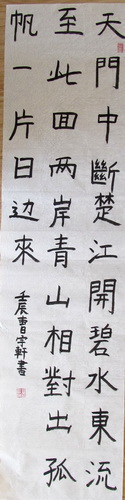 天門中斷楚江開碧水東流
至此回两岸青山相對出孤
帆一片日边來
壬辰曹宇軒書